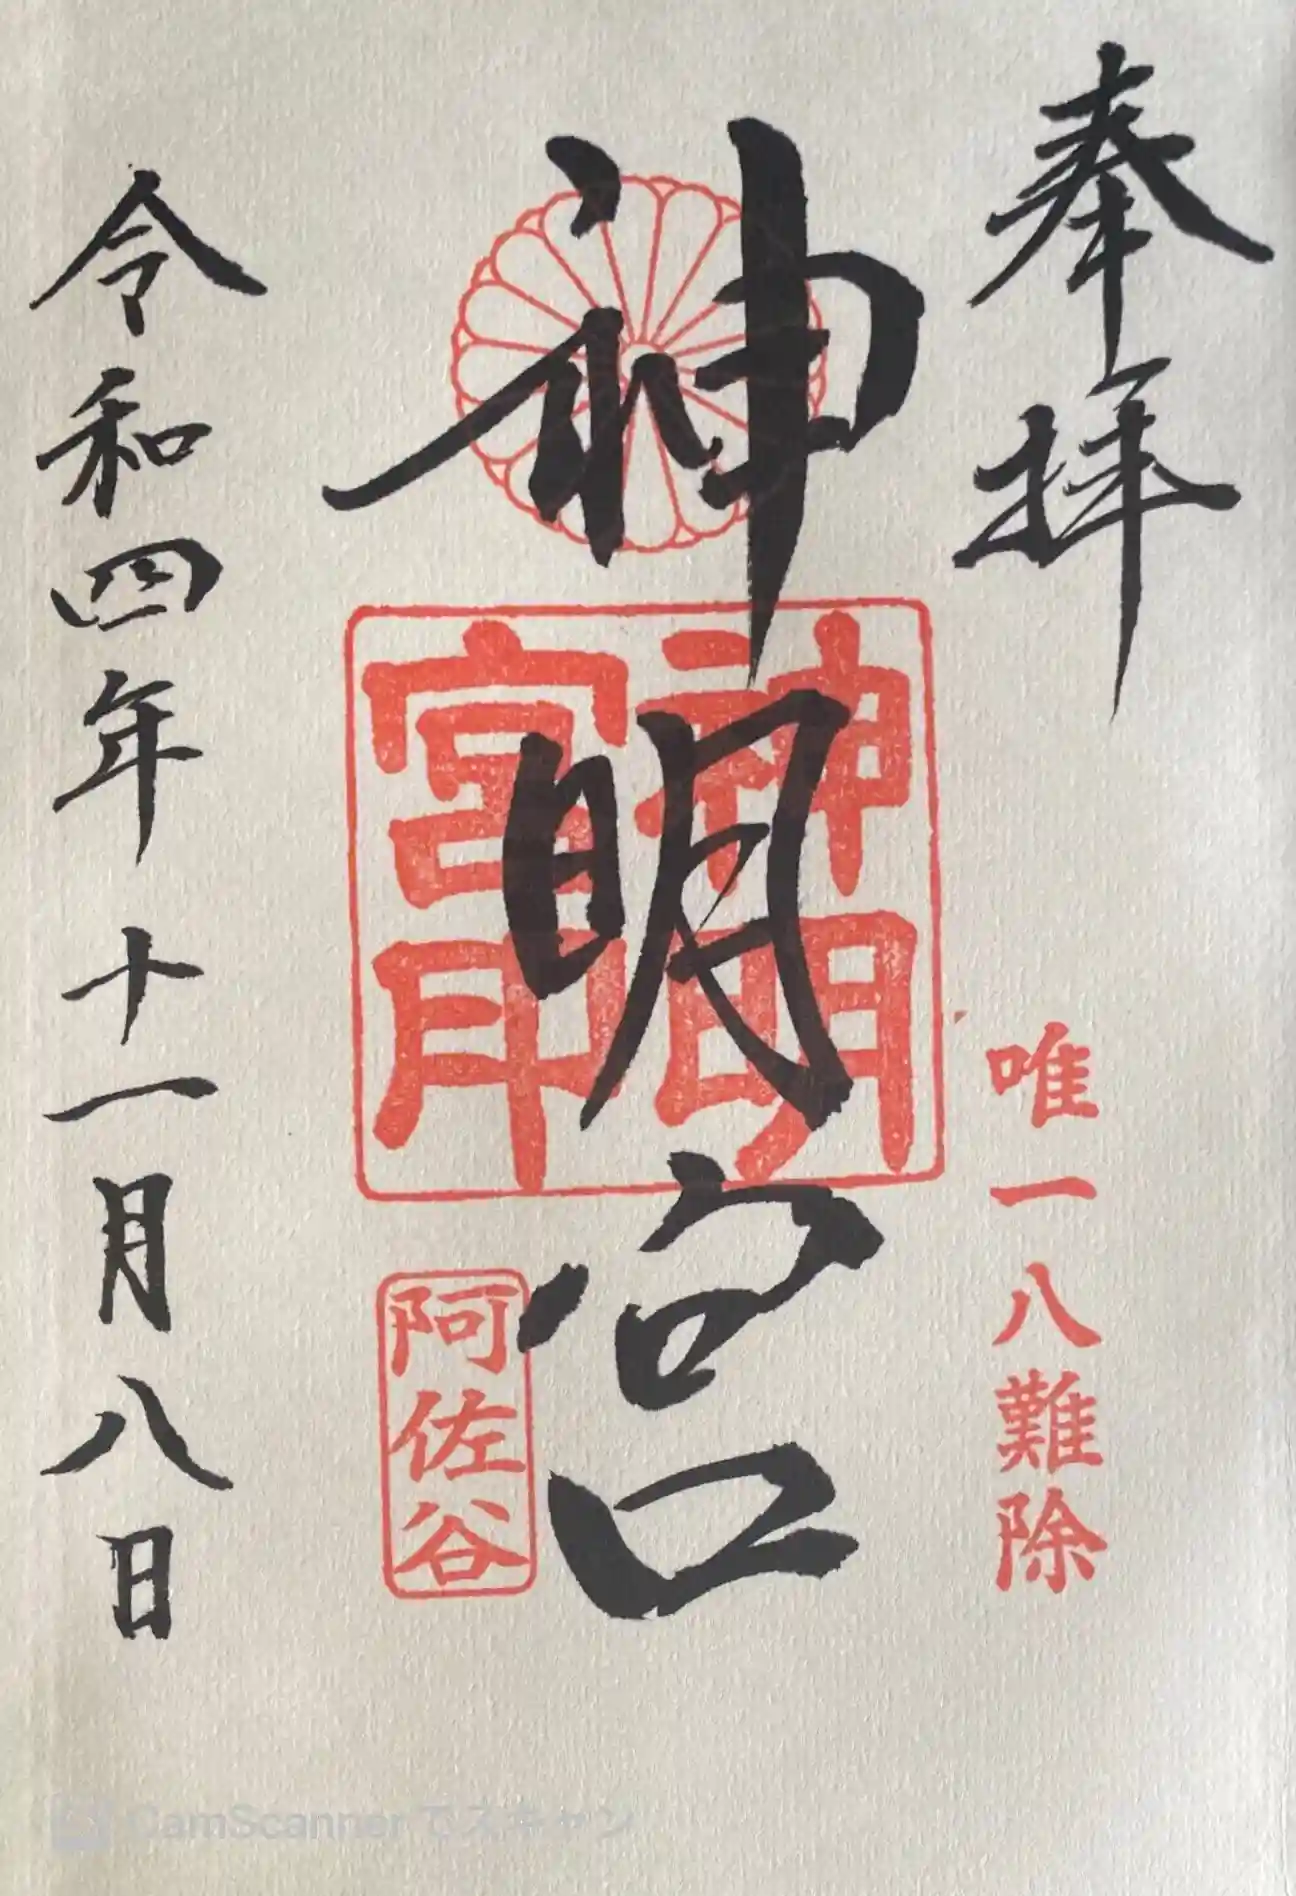 奉拝
唯一八難除
神明宮
神明宮印
阿佐谷
令和四年十一月八日
CamScannerでスキャン